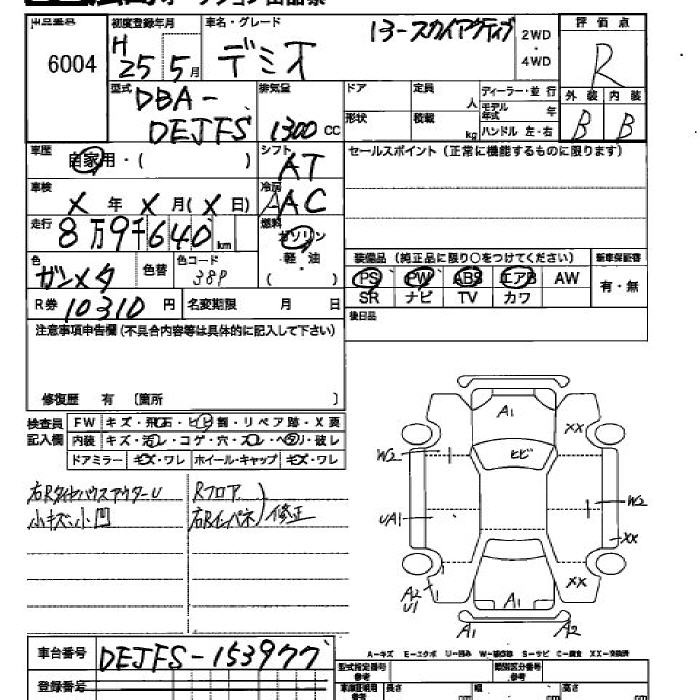 出品番号 初度登録年月 車名・グレード 評価点
6004 H 25 5月 デミオ 13-スカイアクティブ 2WD・4WD R
型式 DBA-DEJFS 排気量 1300 CC
ドア 定員 人 ディーラー・並 行
形状 積載 kg モデル年式 年
ハンドル 左・右
外装 内装
B B
車歴 自家用・( ) シフト AT
セールスポイント(正常に機能するものに限ります)
車検 X 年 X 月(X 日) 冷房 AAC
走行 8万9千640km 燃料 ガソリン・軽・油 ( )
色 ガンメタ 色替 色コード 38P
装備品(純正品に限り○をつけてください) 新車保証書
PS PW ABS エアB AW 有・無
SR ナビ TV カワ
R券 10310円 名変期限 月 日
後日品
注意事項申告欄(不具合内容等は具体的に記入して下さい)
修復歴 有 〔箇所 〕
検査員記入欄 FW キズ・飛石・ヒビ割・リペア跡・X要
内装 キズ・汚レ・コゲ・穴・スレ・ヘタリ・破レ
ドアミラー キズ・ワレ ホイール・キャップ キズ・ワレ
右RタイヤハウスアウターU Rフロア
小キズ、小凹 右Rインパネ 修正
A1
XX
W2 ヒビ
W2
UA1
XX
XX
A2
U1 A1
A1 A2
A-キズ E-エクボ U-凹み W-補修跡 S-サビ C-腐食 XX-交換済
車台番号 DEJFS-153977
型式指定番号 類別区分番号
参考 参考
登録番号 長さ cm 幅 cm 高さ cm